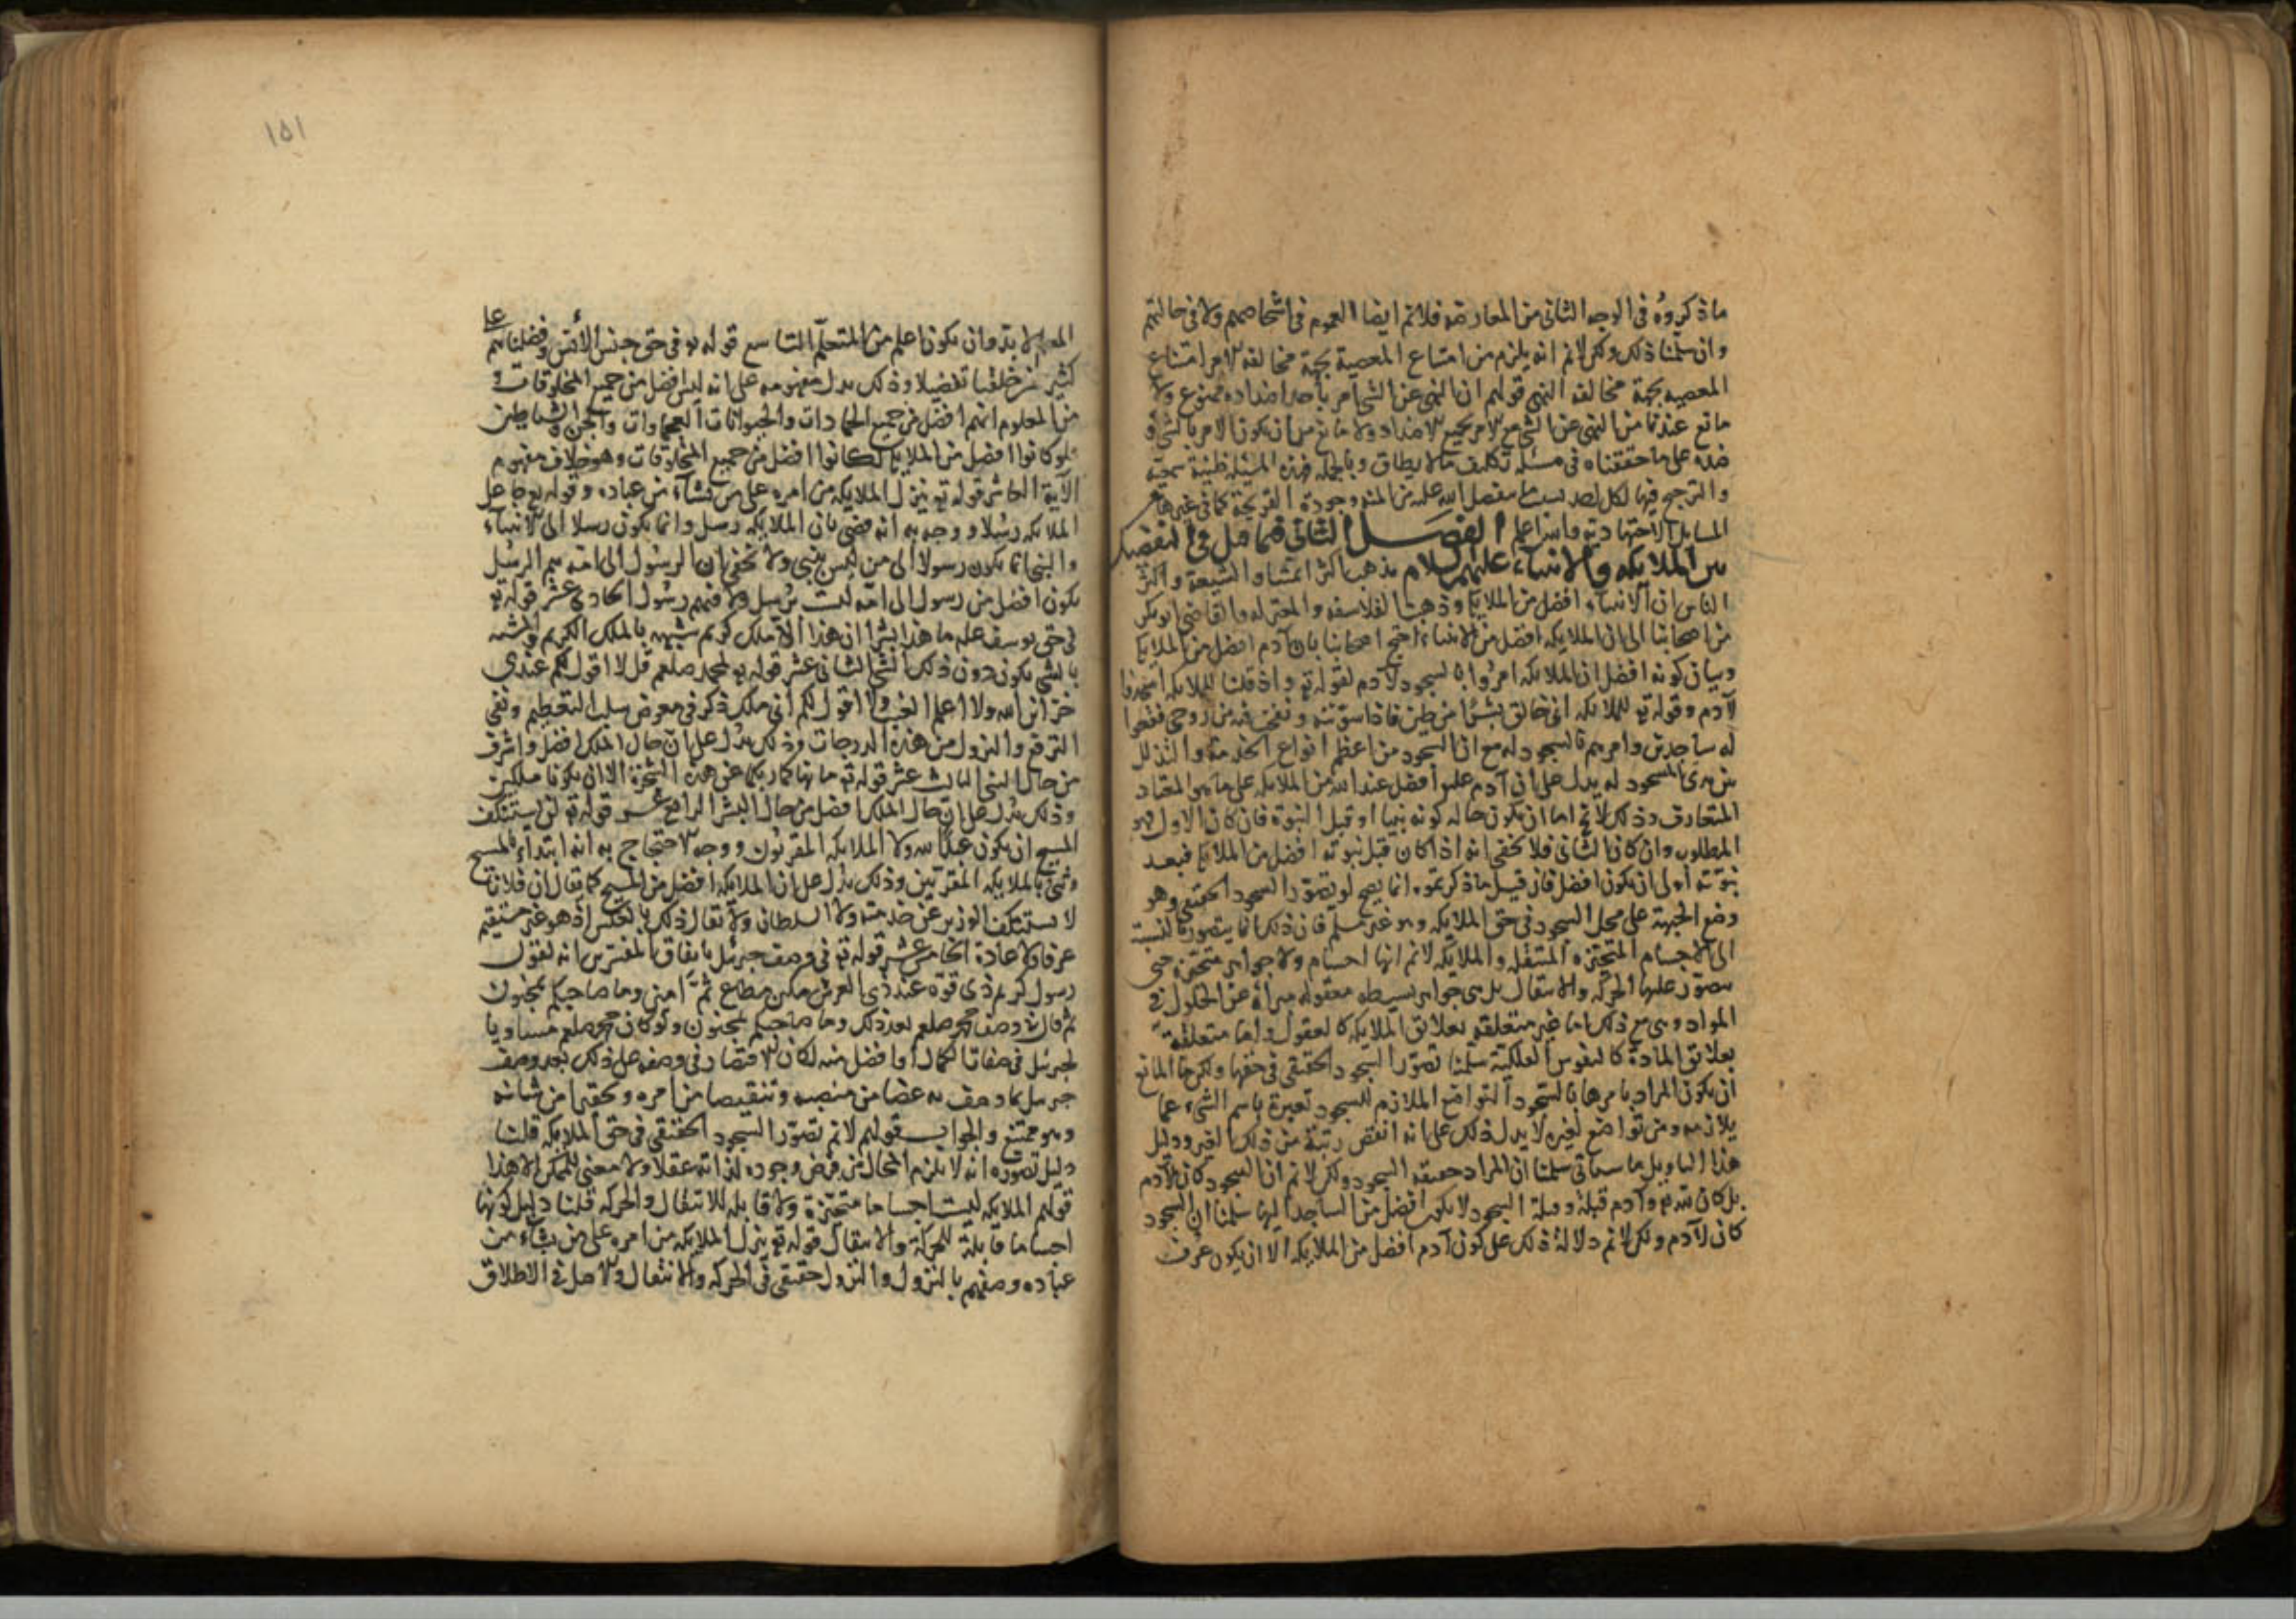 ما ذكروه في الوجه الثاني من المعارضة فلانم ايضا العموم في اشخاصهم ولا في حالتهم
وان سلمنا ذلك ولكن لانم انه يلزم من امتناع المعصية بجهة مخالفة الامر امتناع
المعصيه بجهة مخالفة النهي قولهم ان النهي عن الشي امر باحد اضداده ممنوع ولا
مانع عندنا من النهي عن الشي مع الامر بجميع الاضداد ولا مانع من ان يكون الامر بالشي و
ضده على ما حققناه في مسئلة تكليف ما لا يطاق وبالجملة فهذه المسئلة ظنية سمعية
والترجيح فيها لكل احد بحسب ما يتفضل الله عليه من المنة وجودة القريحة كما في غيرها من
المسايل الاجتهادية والله اعلم الفصل الثاني فيما قيل في التفضيل
بين الملايكه والانبياء عليهم السلام مذهب اكثر ائمتنا والشيعة واكثر
الناس ان الانبياء افضل من الملايكة وذهبت الفلاسفه والمعتزله والقاضي ابو بكر
من اصحابنا الى ان الملايكه افضل من الانبياء احتج اصحابنا بان آدم افضل من الملايكة
وبيان كونه افضل ان الملايكه امروا بالسجود لآدم لقوله تع واذ قلنا للملايكه اسجدوا
لآدم وقوله تع للملايكه اني خالق بشرا من طين فاذا سويته ونفخت فيه من روحي فقعوا
له ساجدين وامرهم بالسجود له مع ان السجود من اعظم انواع الخدمة والتذلل
بين يدي المسجود له يدل على ان آدم عليه افضل عند الله من الملايكه على ما هو المعتاد
المتعارف وذلك لانه اما ان يكون حالة كونه نبيا او قبل النبوة فان كان الاول فهو
المطلوب وان كان الثاني فلا يخفى انه اذا كان قبل نبوته افضل من الملايكة فبعد
نبوته اولى ان يكون افضل فان قيل ما ذكرتموه انما يصح لو تصور السجود الحقيقي وهو
وضع الجبهة على محل السجود في حق الملايكه وهو غير مسلم فان ذلك انما يتصور بالنسبة
الى الاجسام المتحيزه المتنقله والملايكه لانم انها اجسام ولا جواهر متحيزه حتى
يتصور عليها الحركة والانتقال بل هي جواهر بسيطه معقوله مبرأة عن الحلول في
المواد وهي مع ذلك اما غير متعلقه بعلايق الملايكه كالعقول واما متعلقة
بعلايق المادة كالنفوس الفلكية سلمنا تصور السجود الحقيقي في حقها ولكن ما المانع
ان يكون المراد بامرها بالسجود التواضع الملازم للسجود تعبيرة باسم الشيء عما
يلازمه ومن تواضع لغيره لا يدل ذلك على انه انقص رتبة من ذلك الغير ودليل
هذا التاويل ما سياتي سلمنا ان المراد حقيقة السجود ولكن لانم ان السجود كان لآدم
بل كان لله تع وآدم قبلة وقبلة السجود لا يكون افضل من الساجد اليها سلمنا ان السجود
كان لآدم ولكن لانم دلالة ذلك على كون آدم افضل من الملايكه الا ان يكون عرف
١٥١
المعلم لا بد وان يكون اعلم من المتعلم التاسع قوله تع في حق جنس الانس وفضلناهم على
كثير ممن خلقنا تفضيلا وذلك يدل مفهومه على انه ليس افضل من جميع المخلوقات و
من المعلوم انهم افضل من جميع الجمادات والحيوانات العجماوات والجن والشياطين
فلو كانوا افضل من الملايكة لكانوا افضل من جميع المخلوقات وهو خلاف مفهوم
الآية العاشر قوله تع ينزل الملايكه من امره على من يشاء من عباده وقوله تع جاعل
الملايكه رسلا ووجه به انه قضى بان الملايكه رسل وانما يكون رسلا الى الانبياء
والنبي انما يكون رسولا الى من ليس بنبي ولا يخفى ان الرسول الى امة هم الرسل
يكون افضل من رسول الى امة ليست برسل ولا فيهم رسول الحادي عشر قوله تع
في حق يوسف عليه ما هذا بشرا ان هذا الا ملك كريم شبهه بالملك الكريم والمشبه
بالشي يكون دون ذلك الشي الثاني عشر قوله تع لمحمد صلعم قل لا اقول لكم عندي
خزائن الله ولا اعلم الغيب ولا اقول لكم اني ملك ذكر في معرض سلب التعظيم ونفي
الترفع والنزول من هذه الدرجات وذلك يدل على ان حال الملك افضل واشرف
من حال النبي الثالث عشر قوله تع ما نهاكما ربكما عن هذه الشجرة الا ان تكونا ملكين
وذلك يدل على ان حال الملك افضل من حال البشر الرابع عشر قوله تع لن يستنكف
المسيح ان يكون عبدا لله ولا الملايكه المقربون ووجه الاحتجاج به انه ابتداء بالمسيح
وثنى بالملايكه المقربين وذلك يدل على ان الملايكه افضل من المسيح كما يقال ان فلانا
لا يستنكف الوزير عن خدمته ولا السلطان ولا يقال ذلك بالعكس اذ هو غير مستقيم
عرفا ولا عادة الخامس عشر قوله تع في وصف جبرئيل باتفاق المفسرين انه لقول
رسول كريم ذي قوة عند ذي العرش مكين مطاع ثم امين وما صاحبكم بمجنون
ثم قال في وصف محمد صلعم بعد ذلك وما صاحبكم بمجنون ولو كان محمد صلعم مساويا
لجبرئيل في صفات الكمال او افضل منه لكان الاقتصار في وصفه على ذلك بعد وصف
جبرئيل بما وصف به غضا من منصبه وتنقيصا من امره وتحقيرا من شانه
وهو ممتنع والجواب قولهم لانم تصور السجود الحقيقي في حق الملايكه قلنا
دليل تصوره انه لا يلزم المحال من فرض وجوده لذاته عقلا ولا معنى للممكن الا هذا
قولهم الملايكه ليست اجساما متحيزة ولا قابله للانتقال والحركه قلنا دليل كونها
اجساما قابلة للحركة والانتقال قوله تع ينزل الملايكه من امره على من يشاء من
عباده وصفهم بالنزول والنزول حقيقي في الحركه والانتقال والاصل في الاطلاق